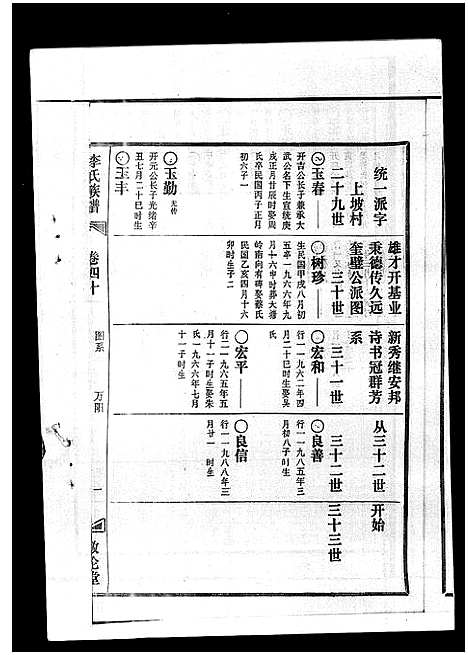 统一派字 雄才开基业 新秀继安邦 从三十二世开始
秉德传久远 诗书冠群芳
上坡村 奎璧公派图系
二十九世 三十世 三十一世 三十二世 三十三世
玉春
开吉公长子兼承大
武公名下生宣统庚
戌正月廿辰时娶周
氏卒民国丙子正月
初六子一
树珍
生民国甲戌八月初
五卒一九六六年九
月十六申时葬大塘
岭南向有碑娶蔡氏
民国乙亥四月十六
卯时生子二
宏和
行一一九六二年四
月二十巳时生娶吴
氏
良善
行一一九八五年三
月初八子时生
宏平
行二一九六五年五
月十一子时生娶朱
氏一九六六年七月
十一子时生
良信
行一一九八八年三
月廿一时生
玉勤 无传
开元公长子光绪辛
丑七月二十巳时生
玉丰
李氏族谱 卷四十 图系 万阳 一 敦伦堂